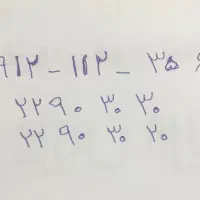 ۹۱۲ - ۱۱۲ - ۳۵
۲۲۹۰ ۳۰ ۳۰
۲۲ ۹۰ ۳۰ ۲۰